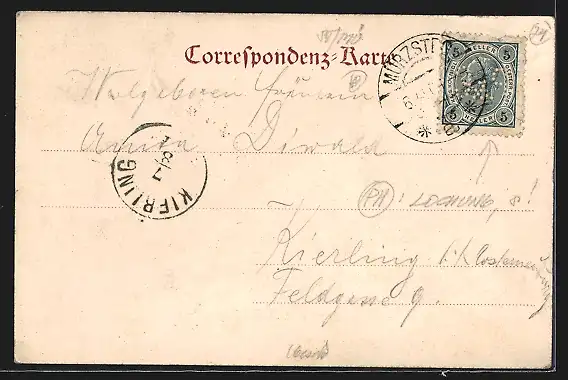 Correspondenz-Karte
MÜRZSTEG
5 HELLER 5
5 HELLER 5
Wolgeboren Fräulein
Anna Diwald
KIERLING
PM: LOCHUNG, 8!
Kierling b/Klosterneuburg
Feldgasse 9.